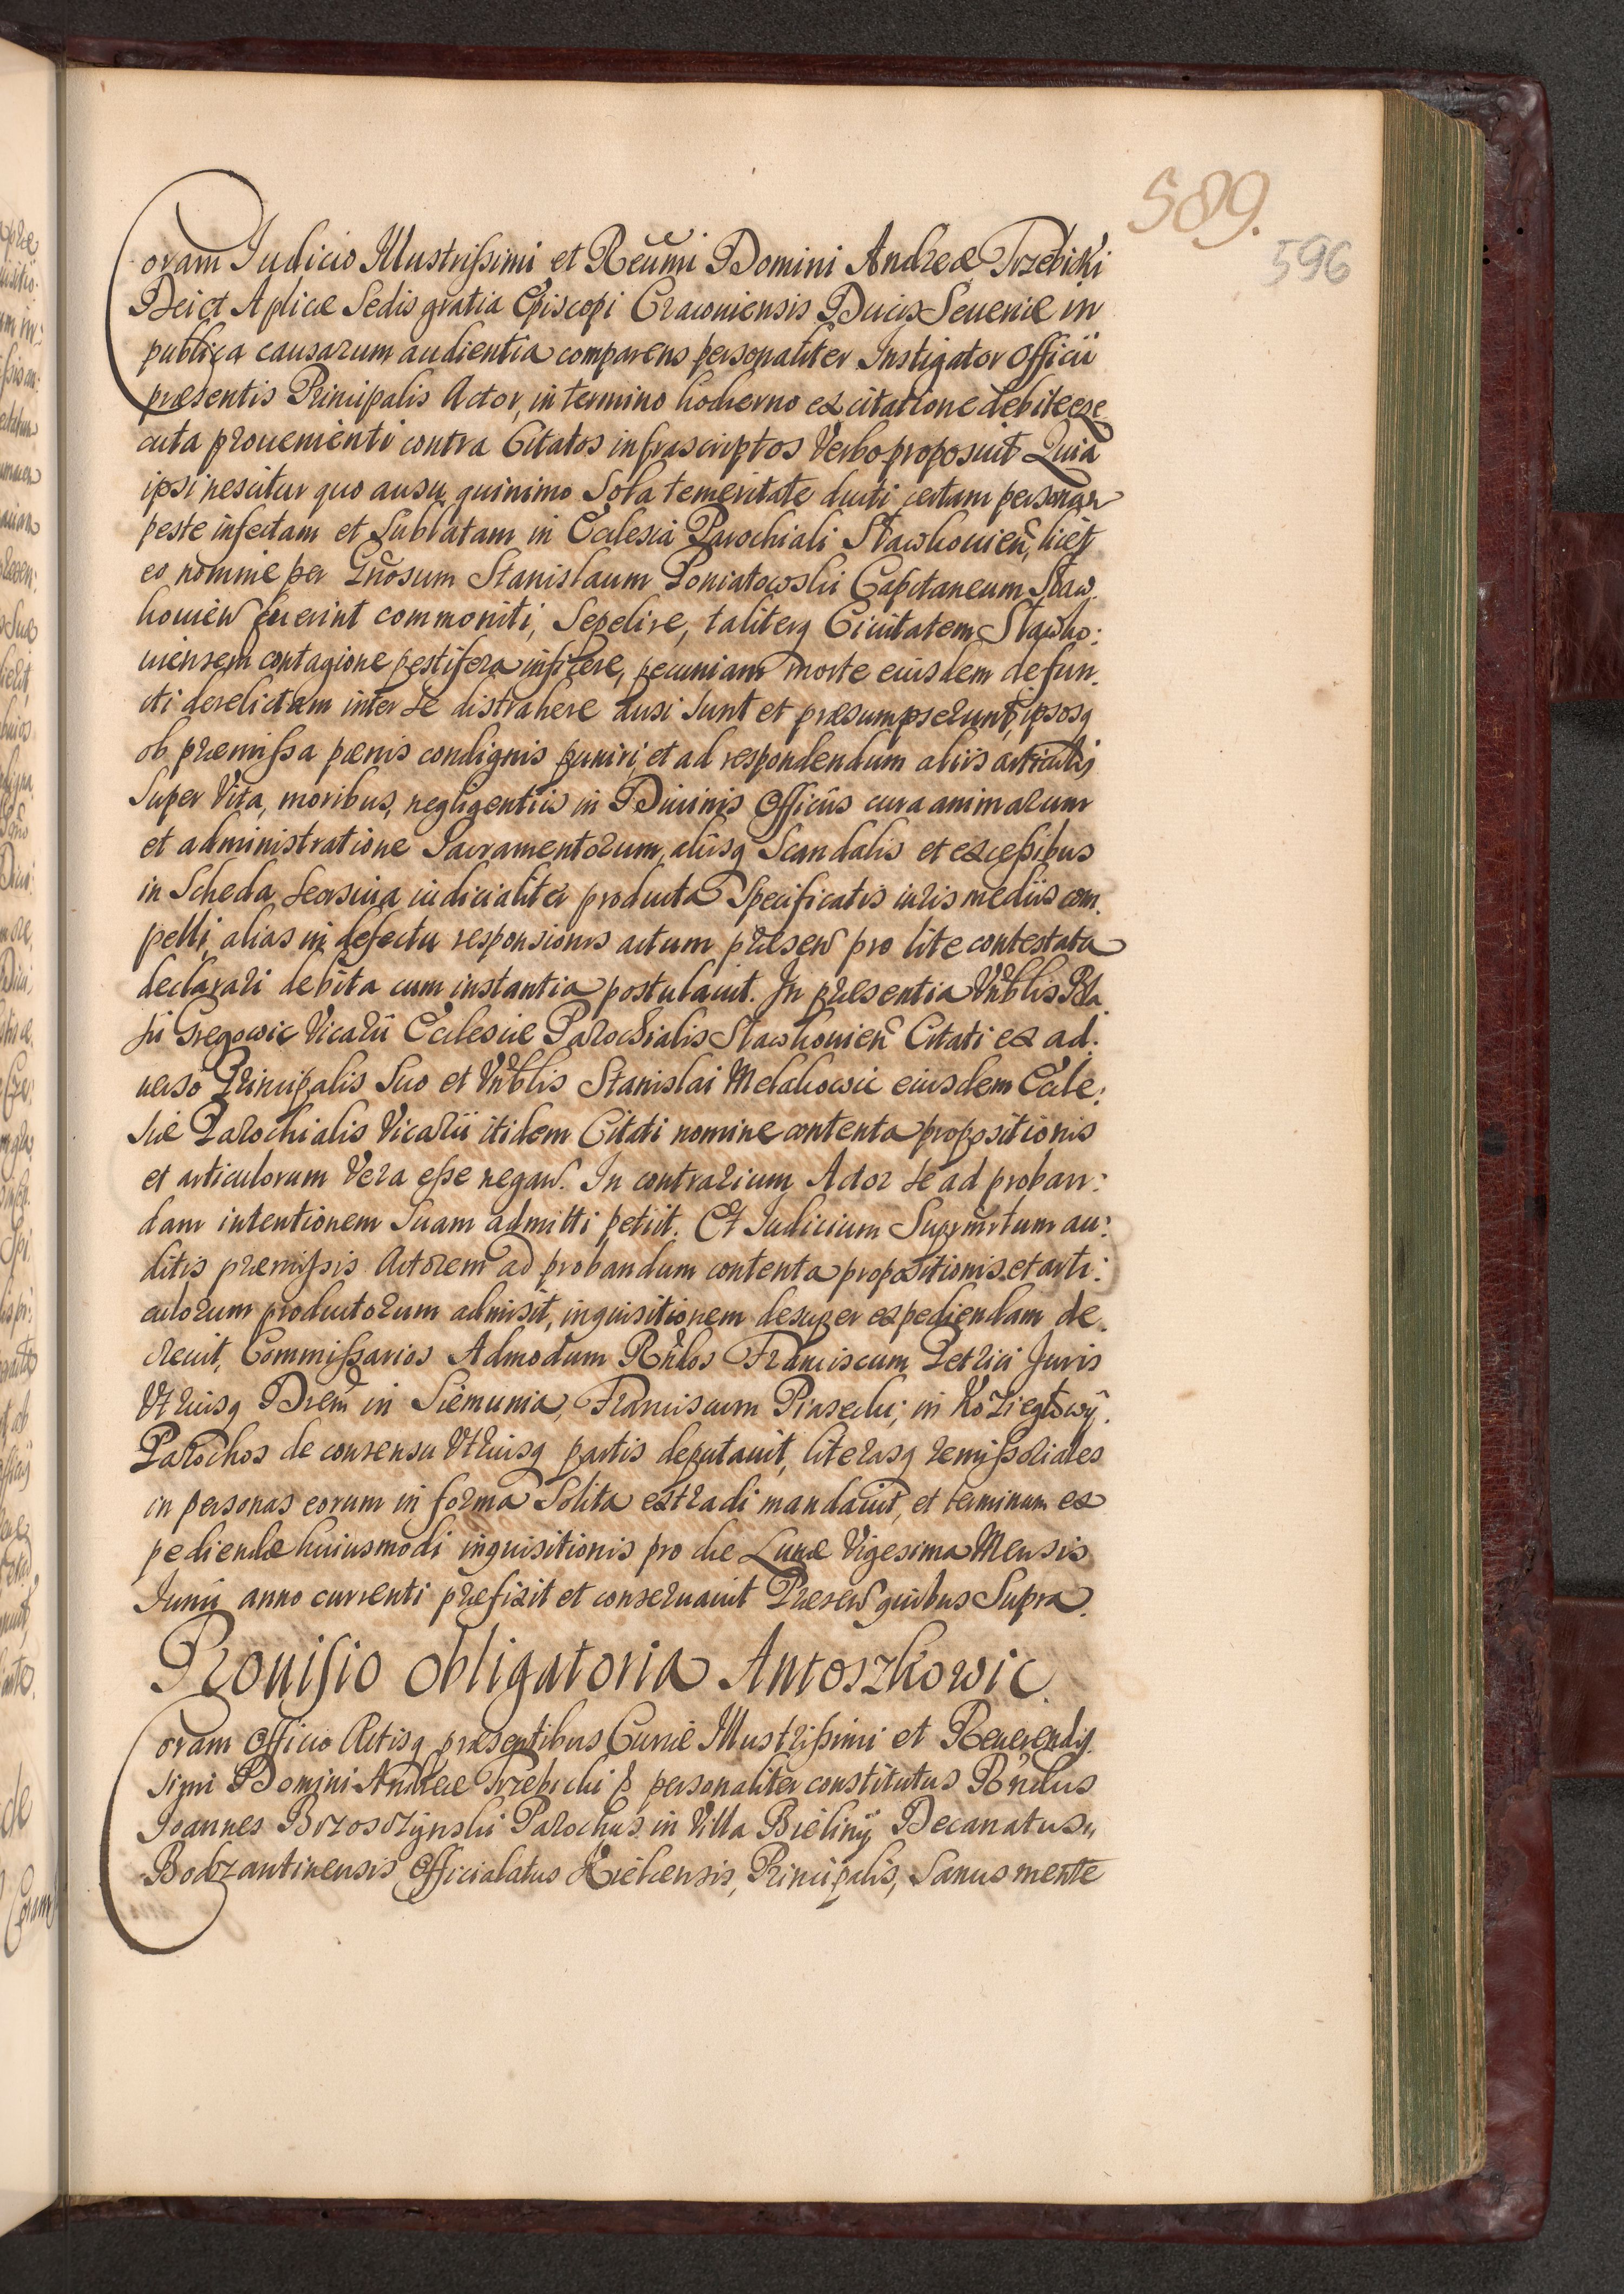 589.
596
Coram Iudicio Illustrissimi et Reumi Domini Andreæ Trzebicki
Dei et Aplicæ Sedis gratia Episcopi Cracouiensis Ducis Seueriæ in
publica causarum audientia comparens personaliter Instigator Officii
præsentis Principalis Actor, in termino hodierno ex citatione debite exe
cuta proueniĕnti contra Citatos infrascriptos Verbo proposuit Quia
ipsi nescitur quo ausu quinimo Sola temeritate ducti certam personam
peste infectam et Sublatam in Ecclesia Parochiali Sławkouien, licet
eo nomine per Gnosum Stanislaum Poniatowski Capitaneum Sław.
kouien fuerint commoniti, Sepelire, taliterq Ciuitatem Sławko:
uiensem contagione pestifera inficere, pecuniam morte eiusdem defun.
cti derelictam inter se distrahere ausi sunt et præsumpserunt, ipsosq
ob præmissa pænis condignis puniri, et ad respondendum aliis articulis
Super Vita, moribus, negligentiis in Diuinis Officiis cura animarum
et administratione Sacramentorum, aliisq Scandalis et excessibus
in Scheda seorsiua iudicialiter producta Specificatis iuris mediis com.
pelli, alias in defectu responsionis actum præsen pro lite contestata
declarari debita cum instantia postulauit. In præsentia Vnblis Bla
sii Gregowic Vicarii Ecclesiæ Parochialis Sławkouien Citati ex ad.
uerso Principalis Suo et Vnblis Stanislai Melakowic eiusdem Eccle:
siæ Parochialis Vicarii itidem Citati nomine contenta propositionis
et articulorum Vera esse negan. In contrarium Actor se ad proban:
dam intentionem Suam admitti petiit. Et Iudicium Suprmtum au:
ditis præmissis Actorem ad probandum contenta propositionis et arti:
culorum productorum admisit, inquisitionem desuper expediendam de.
creuit, Commissarios Admodum Rndos Franciscum Petrici Juris
Vtriusq Drem in Siemunia, Franciscum Piasecki; in Koziegłowÿ.
Parochos de consensu Vtriusq partis deputauit, literasq remissoriales
in personas eorum in forma Solita extradi mandauit, et terminum ex
pediendæ huiusmodi inquisitionis pro die Lunæ Vigesima Mensis
Junii anno currenti præfixit et conseruauit Præsen quibus Supra.
Prouisio obligatoria Antoszkowic.
Coram Officio Actisq præsentibus Curiæ Illustrissimi et Reuerendis
simi Domini Andreæ Trzebicki personaliter constitutus Rndus
Joannes Brzoszÿnski Parochus in Villa Bieliny Decanatus
Bodzantinensis Officialatus Kielcensis, Principalis, Sanus mente